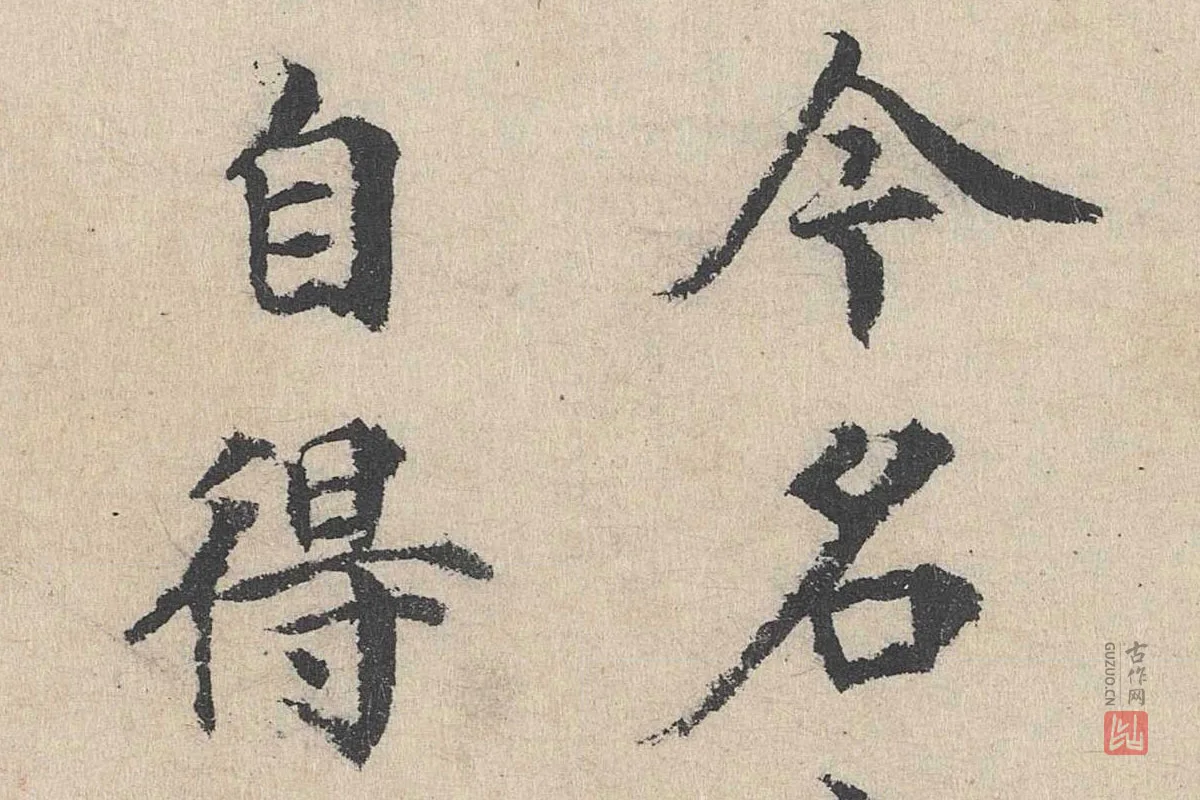 今名
自得
古作网
GUZUO.CN